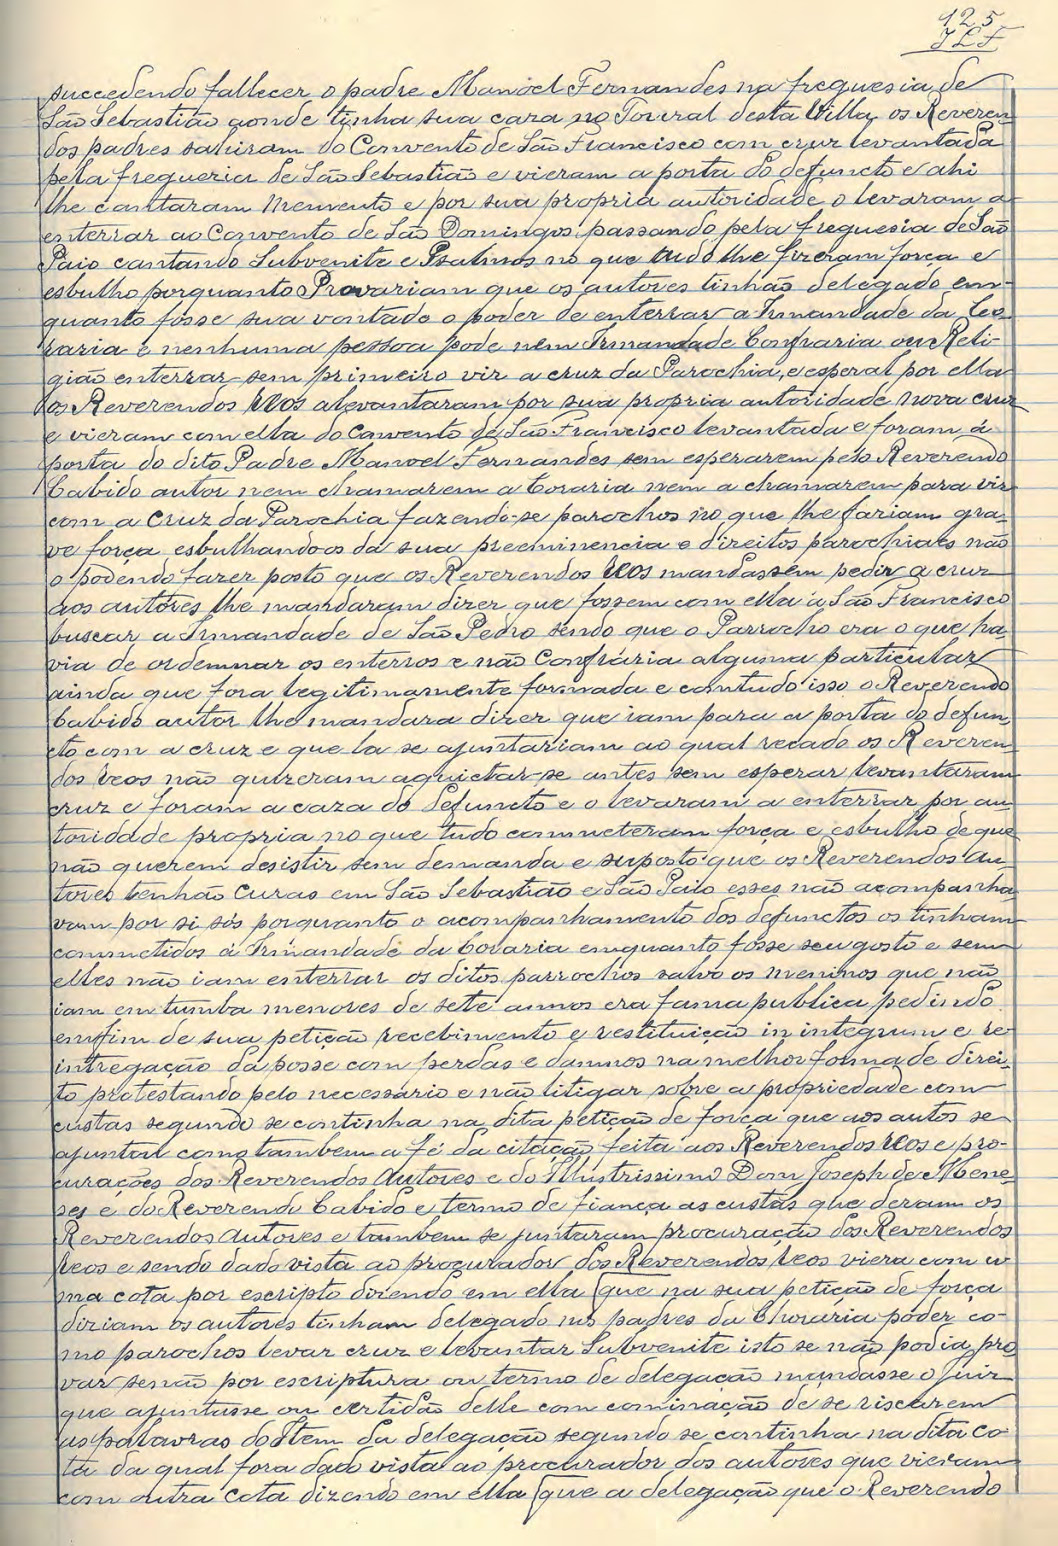 125
JLF
succedendo fallecer o padre Manoel Fernandes na freguesia de
São Sebastião aonde tinha sua caza no Toural desta Villa os Reveren-
dos padres sahiram do Convento de São Francisco com cruz levantada
pela freguezia de São Sebastião e vieram a porta do defuncto e ahi
lhe cantaram Memento e por sua propria autoridade o levaram a
enterrar ao Convento de São Domingos passando pela freguesia de São
Paio cantando Subvenite e Psalmos no que tudo lhe fizeram força e
esbulho porquanto Provariam que os autores tinhão delegado em-
quanto fosse sua vontade o poder de enterrar a Irmandade da Co-
raria e nenhuma pessoa pode nem Irmandade Confraria ou Reli-
gião enterrar sem primeiro vir a cruz da Parochia, e esperal por ella
os Reverendos Reos alevantaram por sua propria autoridade nova cruz
e vieram com ella do Convento de São Francisco levantada e foram á
porta do dito Padre Manoel Fernandes sem esperarem pelo Reverendo
Cabido autor nem chamarem a Coraria nem a chamarem para vir
com a cruz da Parochia fazendo-se parochos no que lhe fariam gra-
ve força esbulhandoos da sua preeminencia e direitos parochiaes não
o podendo fazer posto que os Reverendos Reos mandassem pedir a cruz
aos autores lhe mandaram dizer que fossem com ella a São Francisco
buscar a Irmandade de São Pedro sendo que o Parrocho era o que ha-
via de ordemnar os enterros e não Confraria alguma particular
ainda que fora legitimamente formada e comtudo isso o Reverendo
Cabido autor lhe mandara dizer que iam para a porta do defun-
cto com a cruz e que la se ajuntariam ao qual recado os Reveren-
dos Reos não quizeram aquietar-se antes sem esperar levantaram
cruz e foram a caza do Defuncto e o levaram a enterrar por au-
toridade propria no que tudo commeteram força e esbulho de que
não querem desistir sem demanda e suposto que os Reverendos Au-
tores tenhão curas em São Sebastião e São Paio esses não acompanha-
vam por si sós porquanto o acompanhamento dos defunctos os tinham
commetidos á Irmandade da Coraria emquanto fosse seu gosto e sem
elles não iam enterrar os ditos parrochos salvo os meninos que não
iam em tumba menores de sete annos era fama publica pedindo
emfim de sua petição recebimento e restituição in integrum e re-
integração da posse com perdas e damnos na melhor forma de direi-
to protestando pelo necessario e não litigar sobre a propriedade com
custas segundo se continha na dita petição de força que aos autos se
ajuntou como tambem a fé da citação feita aos Reverendos Reos e pro-
curações dos Reverendos Autores e do Illustrissimo Dom Joseph de Mene-
ses e do Reverendo Cabido e termo de fiança as custas que deram os
Reverendos Autores e tambem se juntaram procuração dos Reverendos
Reos e sendo dado vista ao procurador dos Reverendos Reos viera com u-
ma cota por escripto dizendo em ella (que na sua petição de força
diziam os autores tinham delegado nos padres da Choraria poder co-
mo parochos levar cruz e levantar Subvenite isto se não podia pro-
var senão por escriptura ou termo de delegação mandasse o Juiz
que ajuntasse ou certidão delle com cominação de se riscarem
as palavras do Item da delegação segundo se continha na dita co-
ta da qual fora dado vista ao procurador dos autores que vieram
com outra cota dizendo em ella (que a delegação que o Reverendo